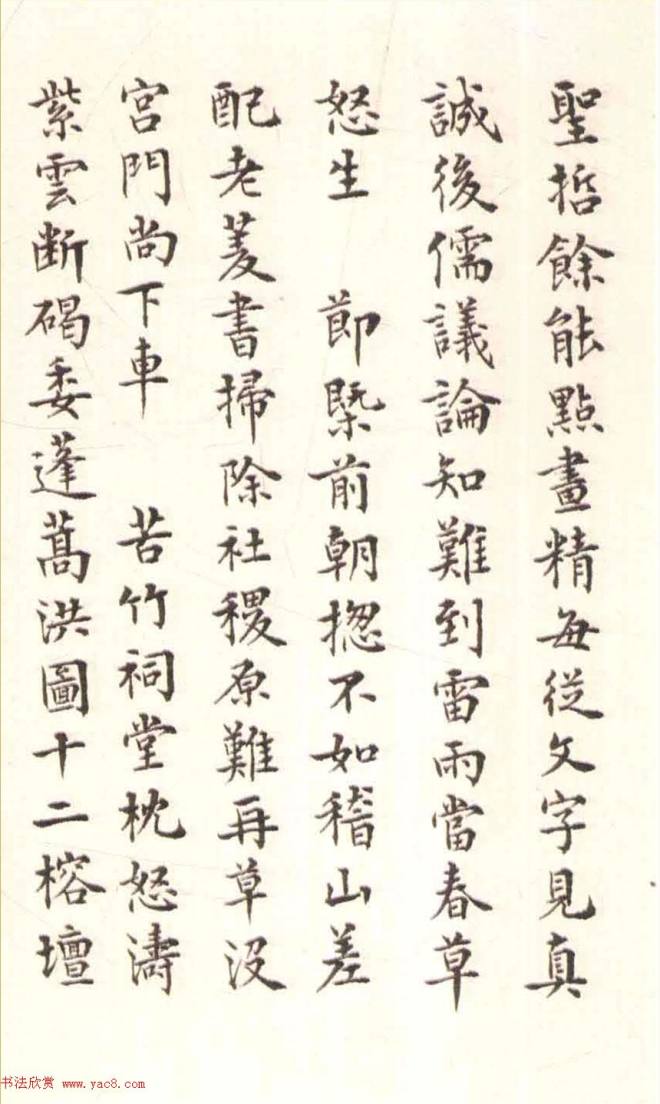 聖哲餘能點畫精每從文字見真
誠後儒議論知難到雷雨當春草
怒生　節槩前朝揔不如稽山差
配老菱書掃除社稷原難再草沒
宮門尚下車　苦竹祠堂枕怒濤
紫雲断碣委蓬蒿洪圖十二榕壇
书法欣赏 www.yac8.com